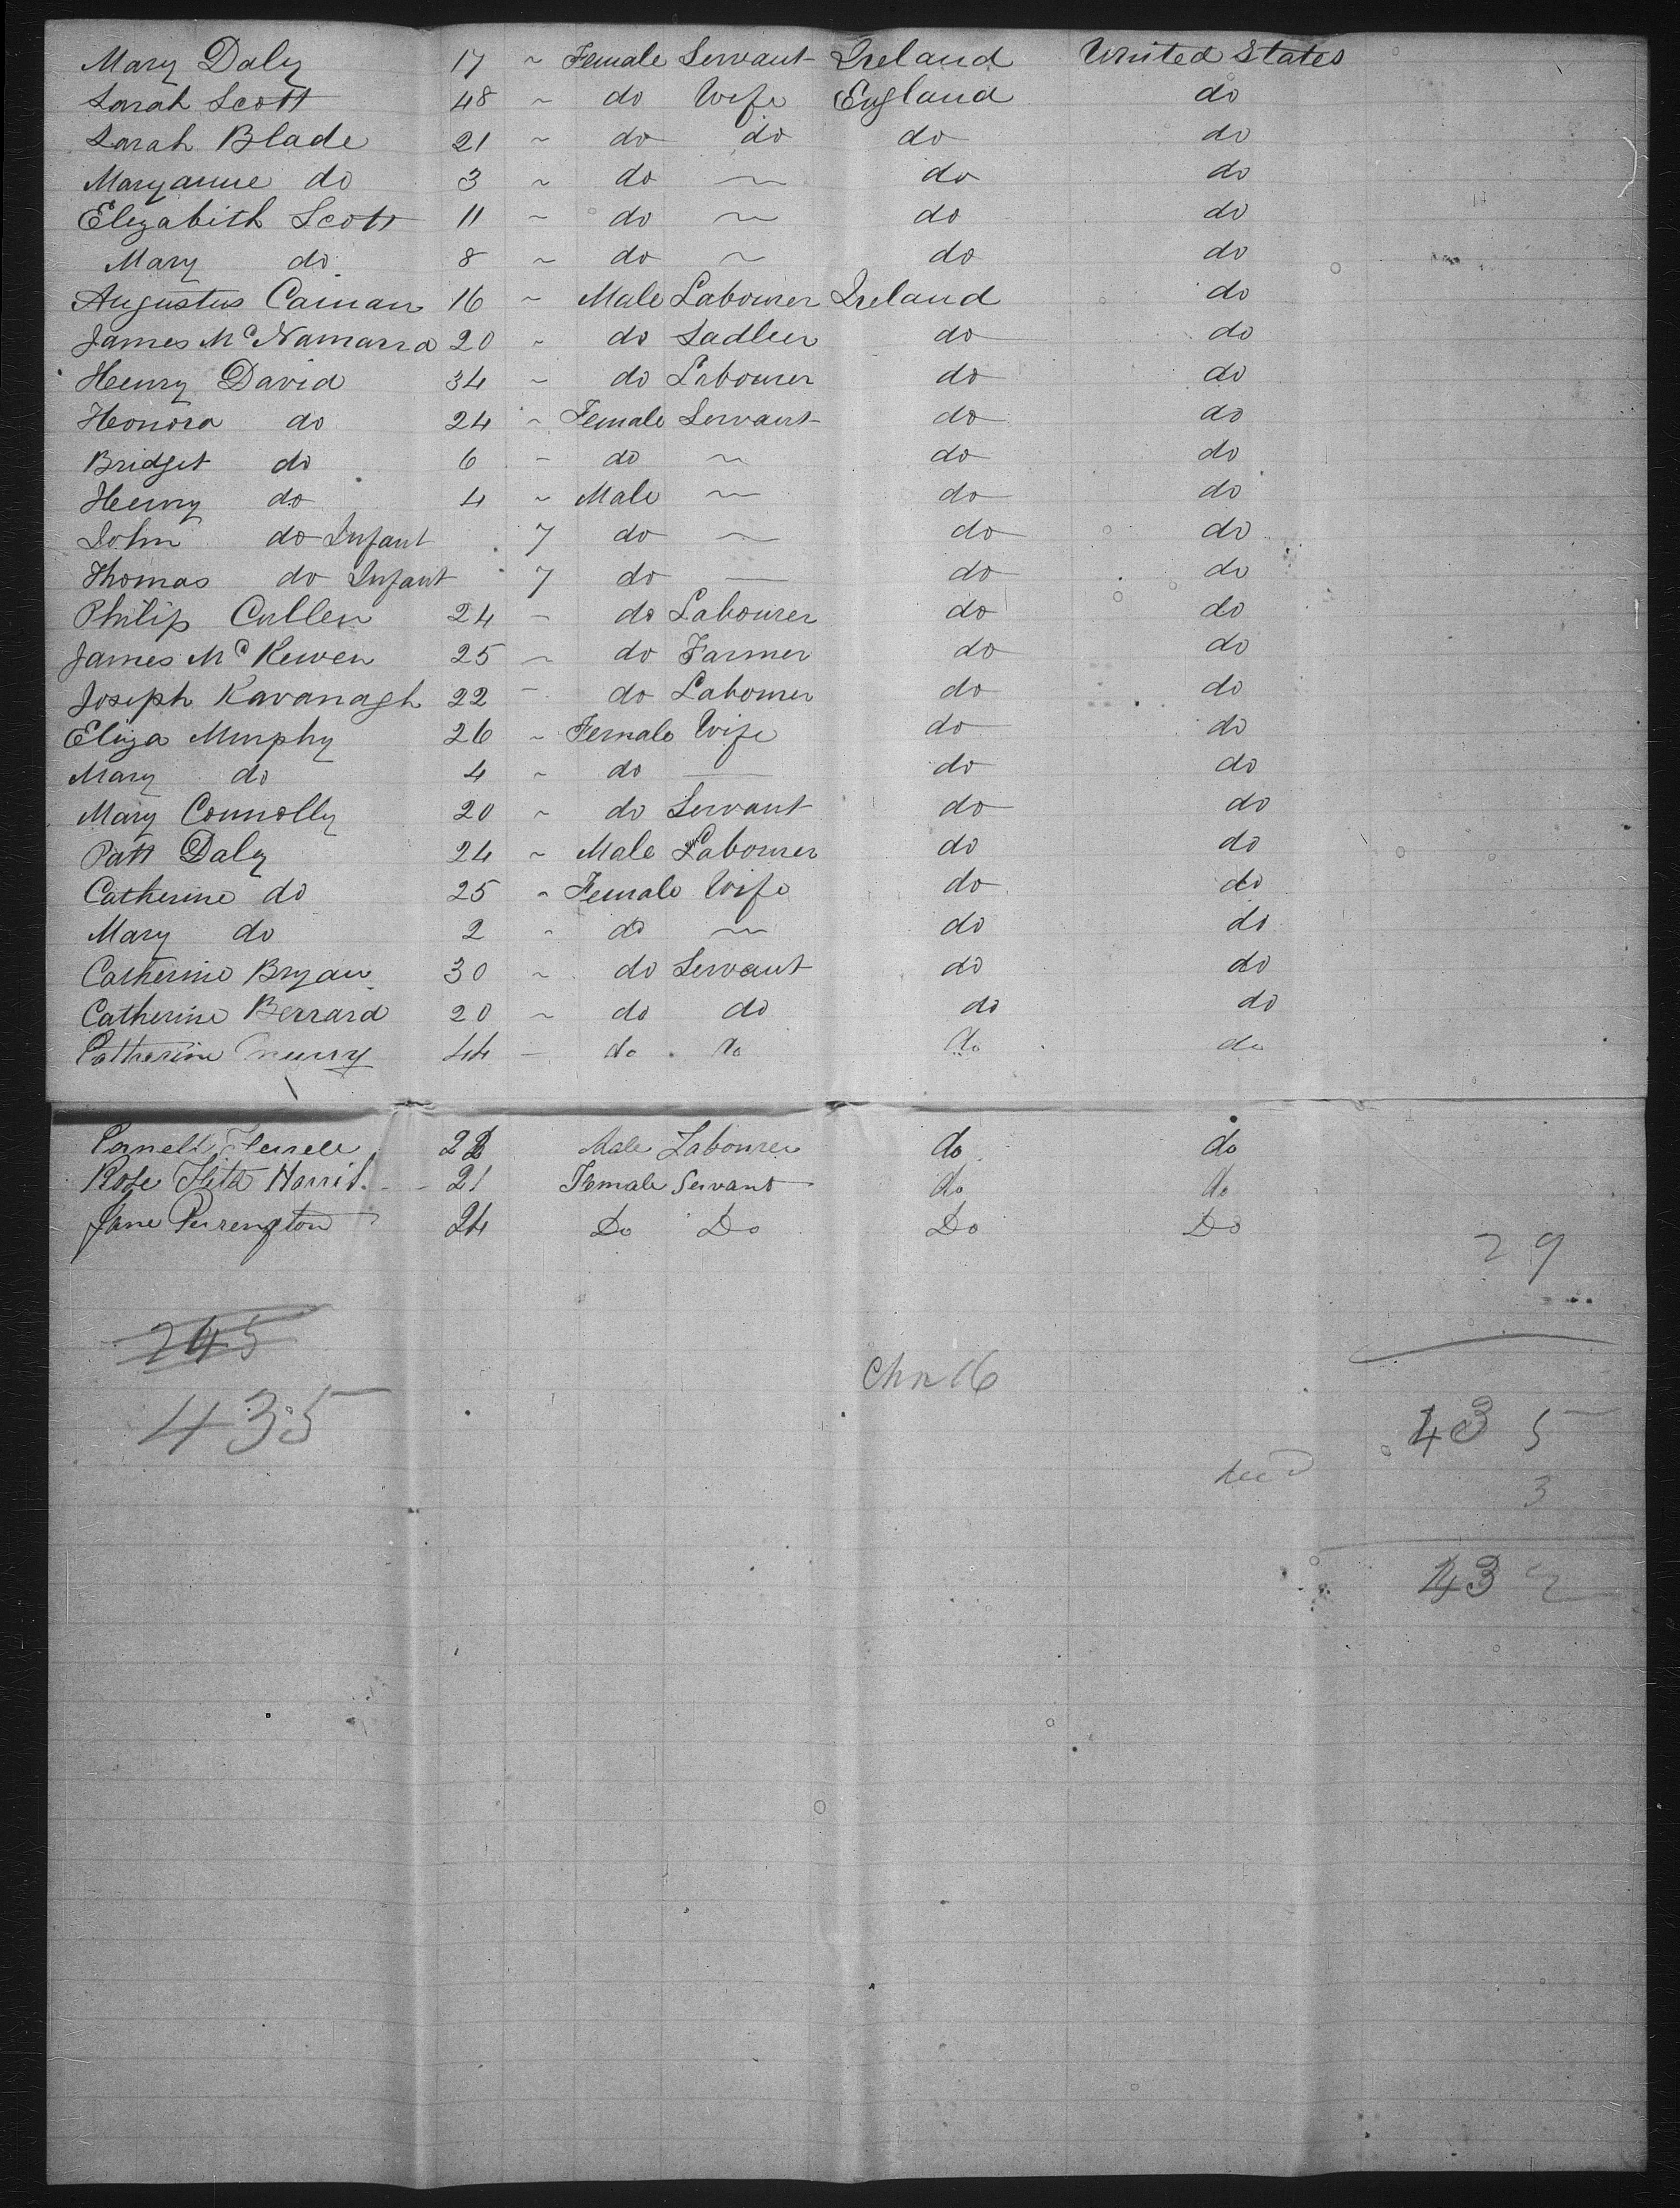 Mary Daly 17 ~ Female Servant Ireland United States
Sarah Scott 48 ~ do Wife England do
Sarah Blade 21 ~ do do do do
Maryanne do 3 ~ do ~ do do
Elizabith Scott 11 ~ do ~ do do
Mary do 8 ~ do ~ do do
Augustus 16 ~ Male Labourer Ireland do
James McNamarra 20 ~ do Sadleer do do
Henry David 34 ~ do Labourer do do
Honora do 24 ~ Female Servant do do
Bridget do 6 ~ do ~ do do
Henry do 4 ~ Male ~ do do
John do Infant 7 do ~ do do
Thomas do Infant 7 do — do do
Philip Cullen 24 ~ do Labourer do do
James Mc Kewen 25 ~ do Farmer do do
Joseph Kavanagh 22 ~ do Labourer do do
Eliza Murphy 26 ~ Female Wife do do
Mary do 4 ~ do — do do
Mary Connolly 20 ~ do Servant do do
Patt Daly 24 ~ Male Labourer do do
Catherine do 25 ~ Female Wife do do
Mary do 2 ~ do ~ do do
Catherine Bryan 30 ~ do Servant do do
Catherine Berrard 20 ~ do do do do
Catherine 44 — do do do do
22 Male Labourer do do
Rose 21 Female Servant do do
Jane Perrengton 24 Do Do Do Do
29
245
Chn 16
435
435
3
432